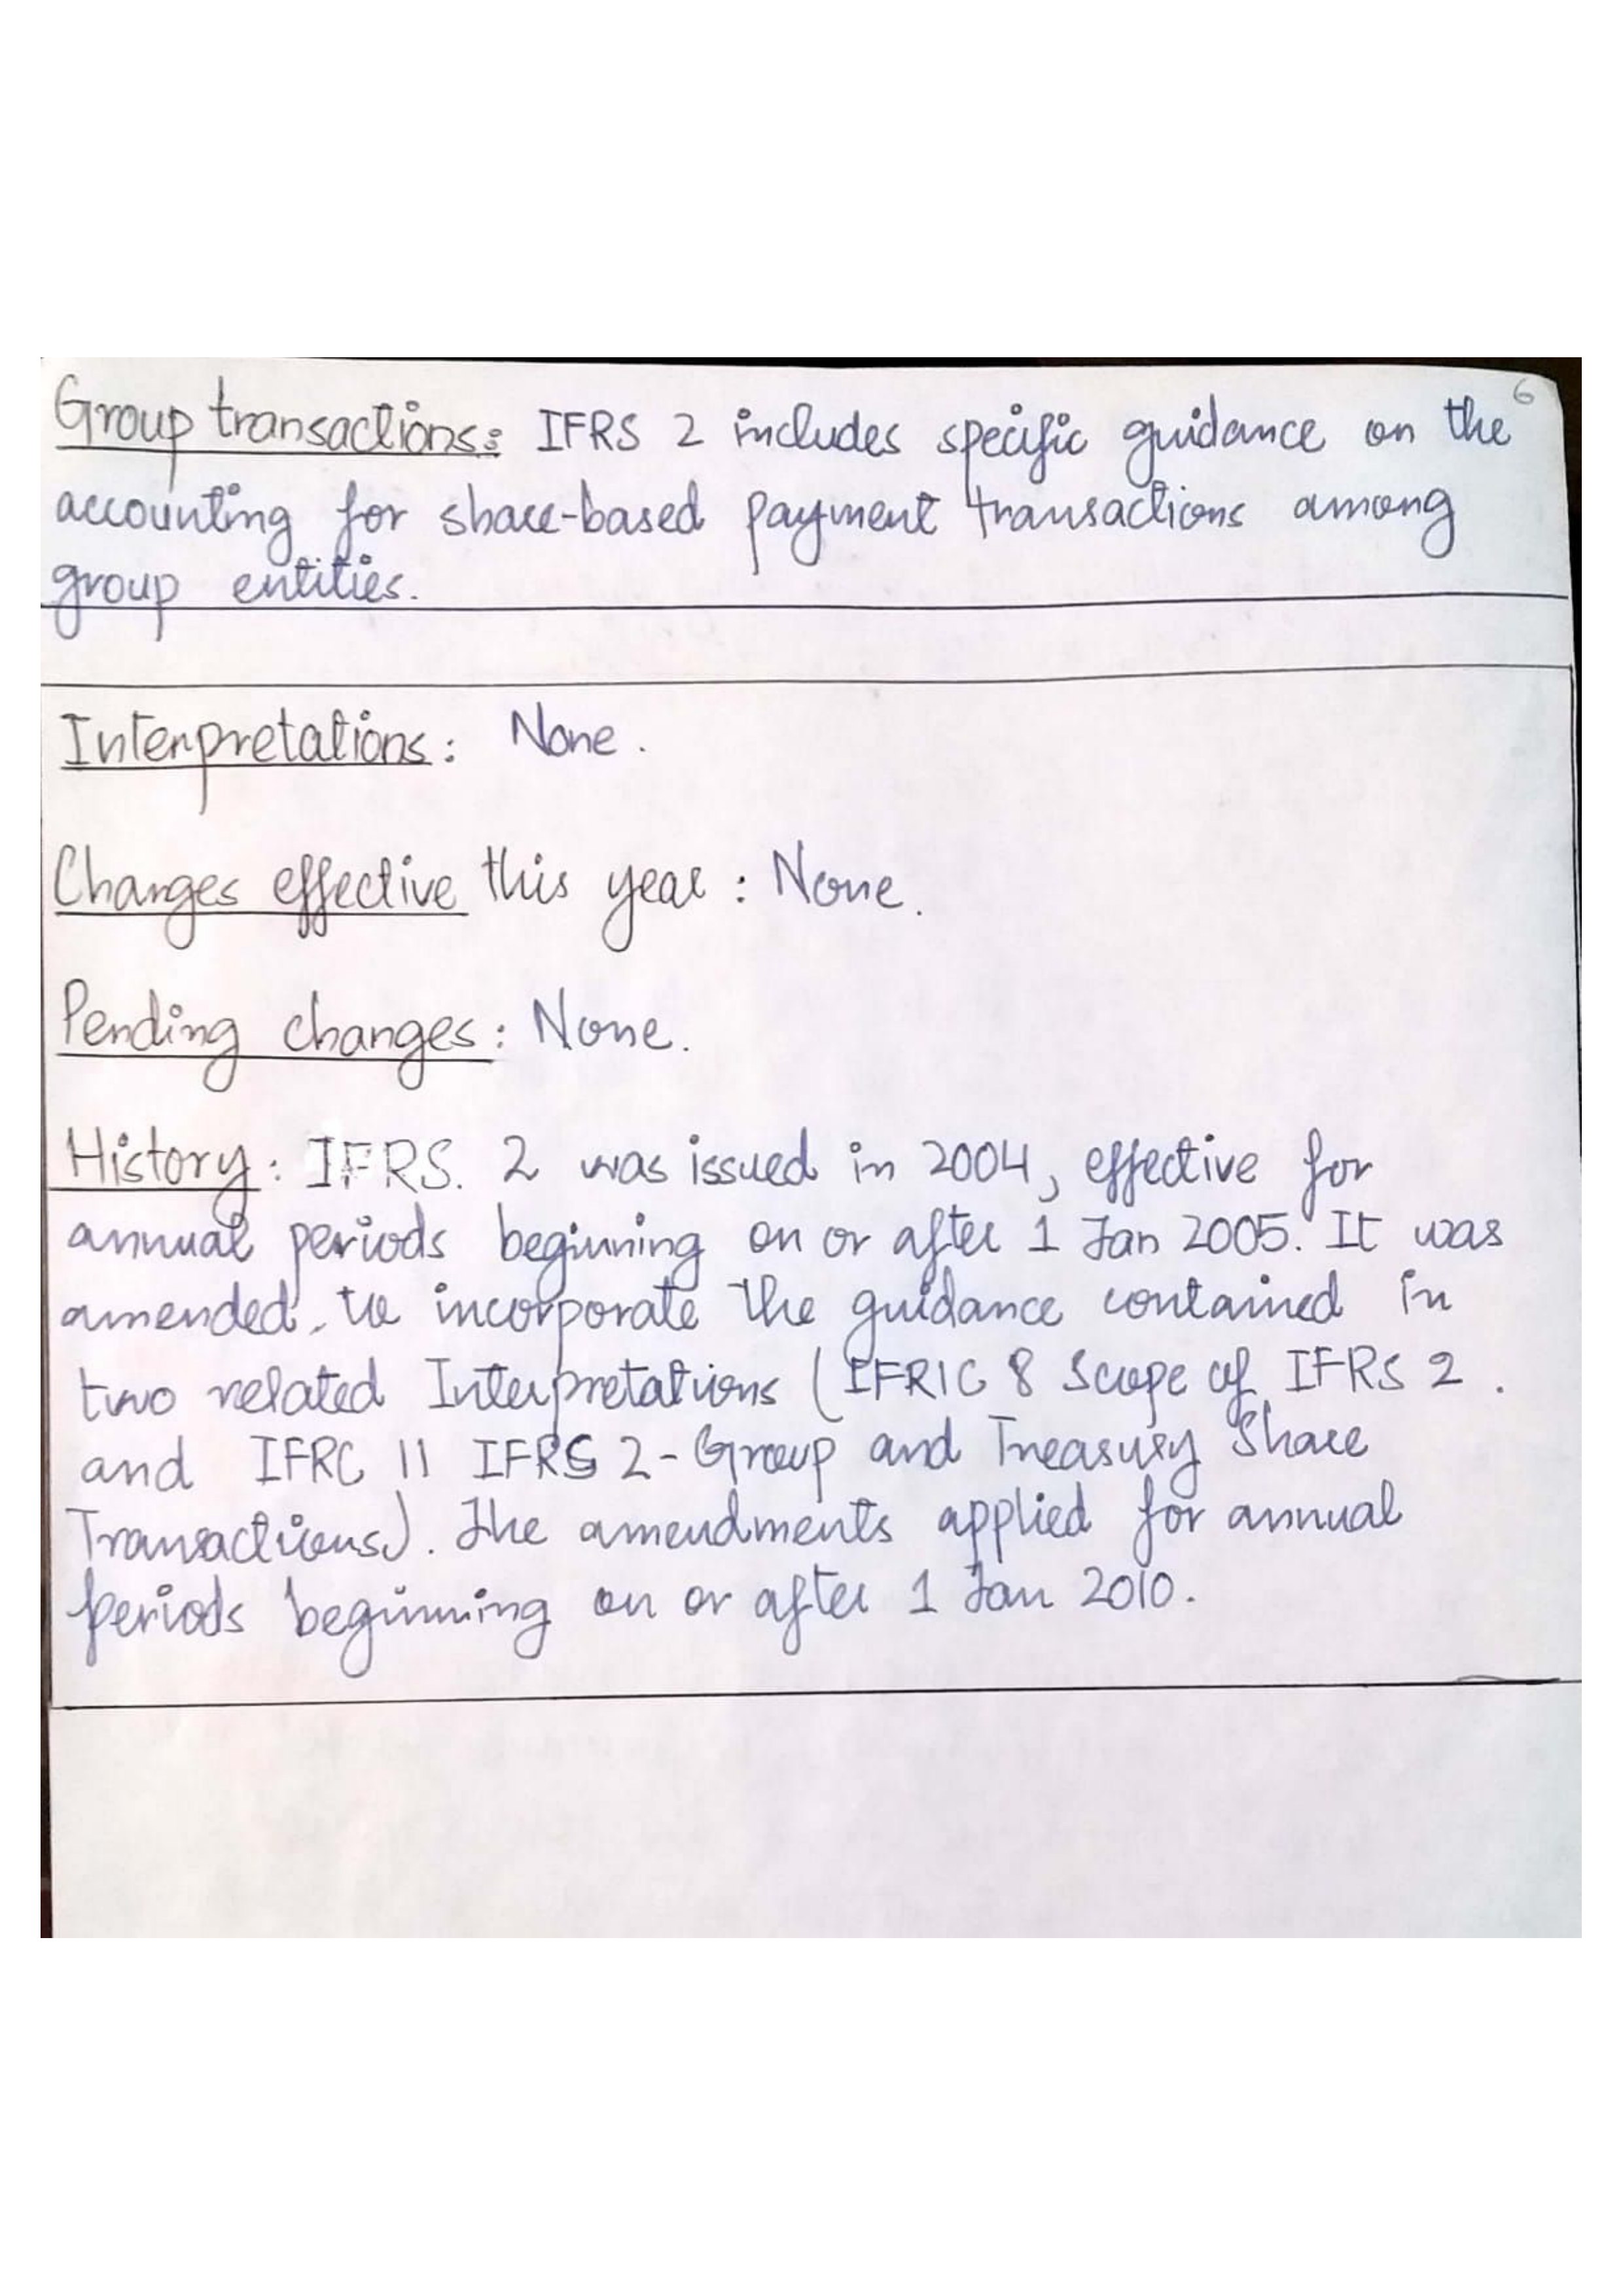 6
Group transactions: IFRS 2 includes specific guidance on the
accounting for share-based payment transactions among
group entities.
Interpretations: None.
Changes effective this year: None.
Pending changes: None.
History: IFRS. 2 was issued in 2004, effective for
annual periods beginning on or after 1 Jan 2005. It was
amended, to incorporate the guidance contained in
two related Interpretations (IFRIC 8 Scope of IFRS 2.
and IFRC 11 IFRS 2-Group and Treasury Share
Transactions). The amendments applied for annual
periods beginning on or after 1 Jan 2010.